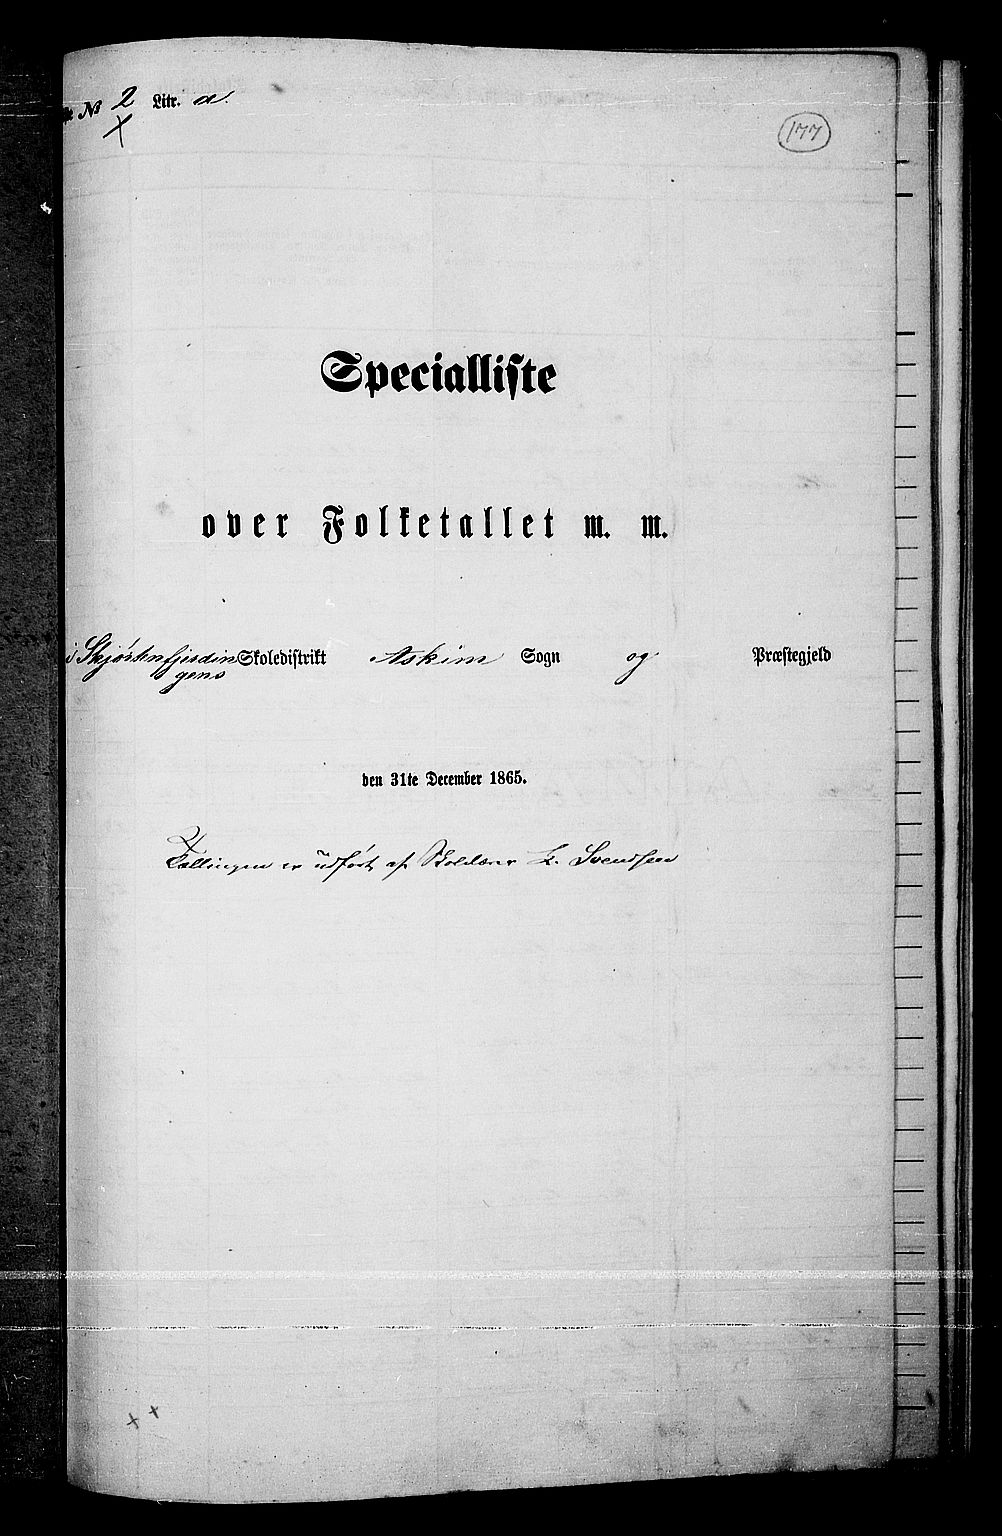 № 2 Litr. a.
177
Specialliste
over Folketallet m. m.
i Skjørtenfjerdin Skoledistrikt Askim Sogn og Præstegjeld
gens
den 31te December 1865.
Tællingen er udført af Skolelærer L. Svendsen